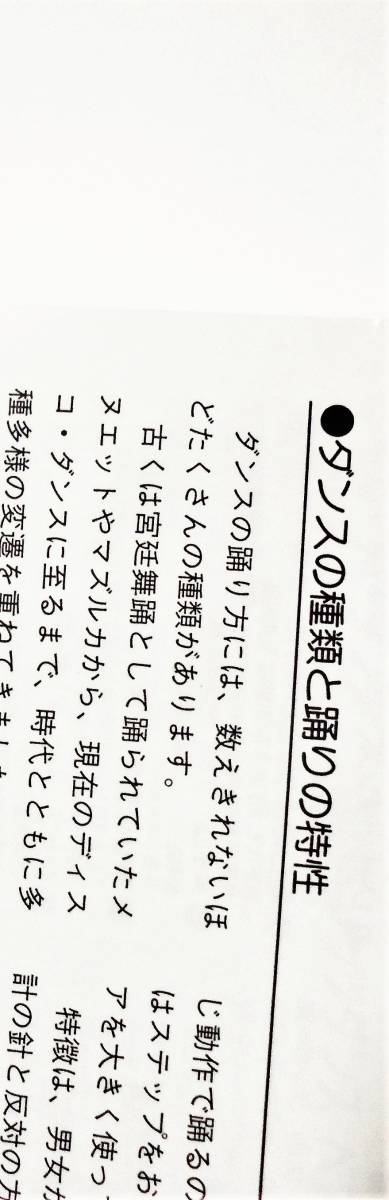 ●ダンスの種類と踊りの特性
ダンスの踊り方には、数えきれないほ
どたくさんの種類があります。
古くは宮廷舞踊として踊られていたメ
ヌエットやマズルカから、現在のディス
コ・ダンスに至るまで、時代とともに多
種多様の変遷を重ねてきました
じ動作で踊るの
はステップをお
アを大きく使っ
特徴は、男女が
計の針と反対の方